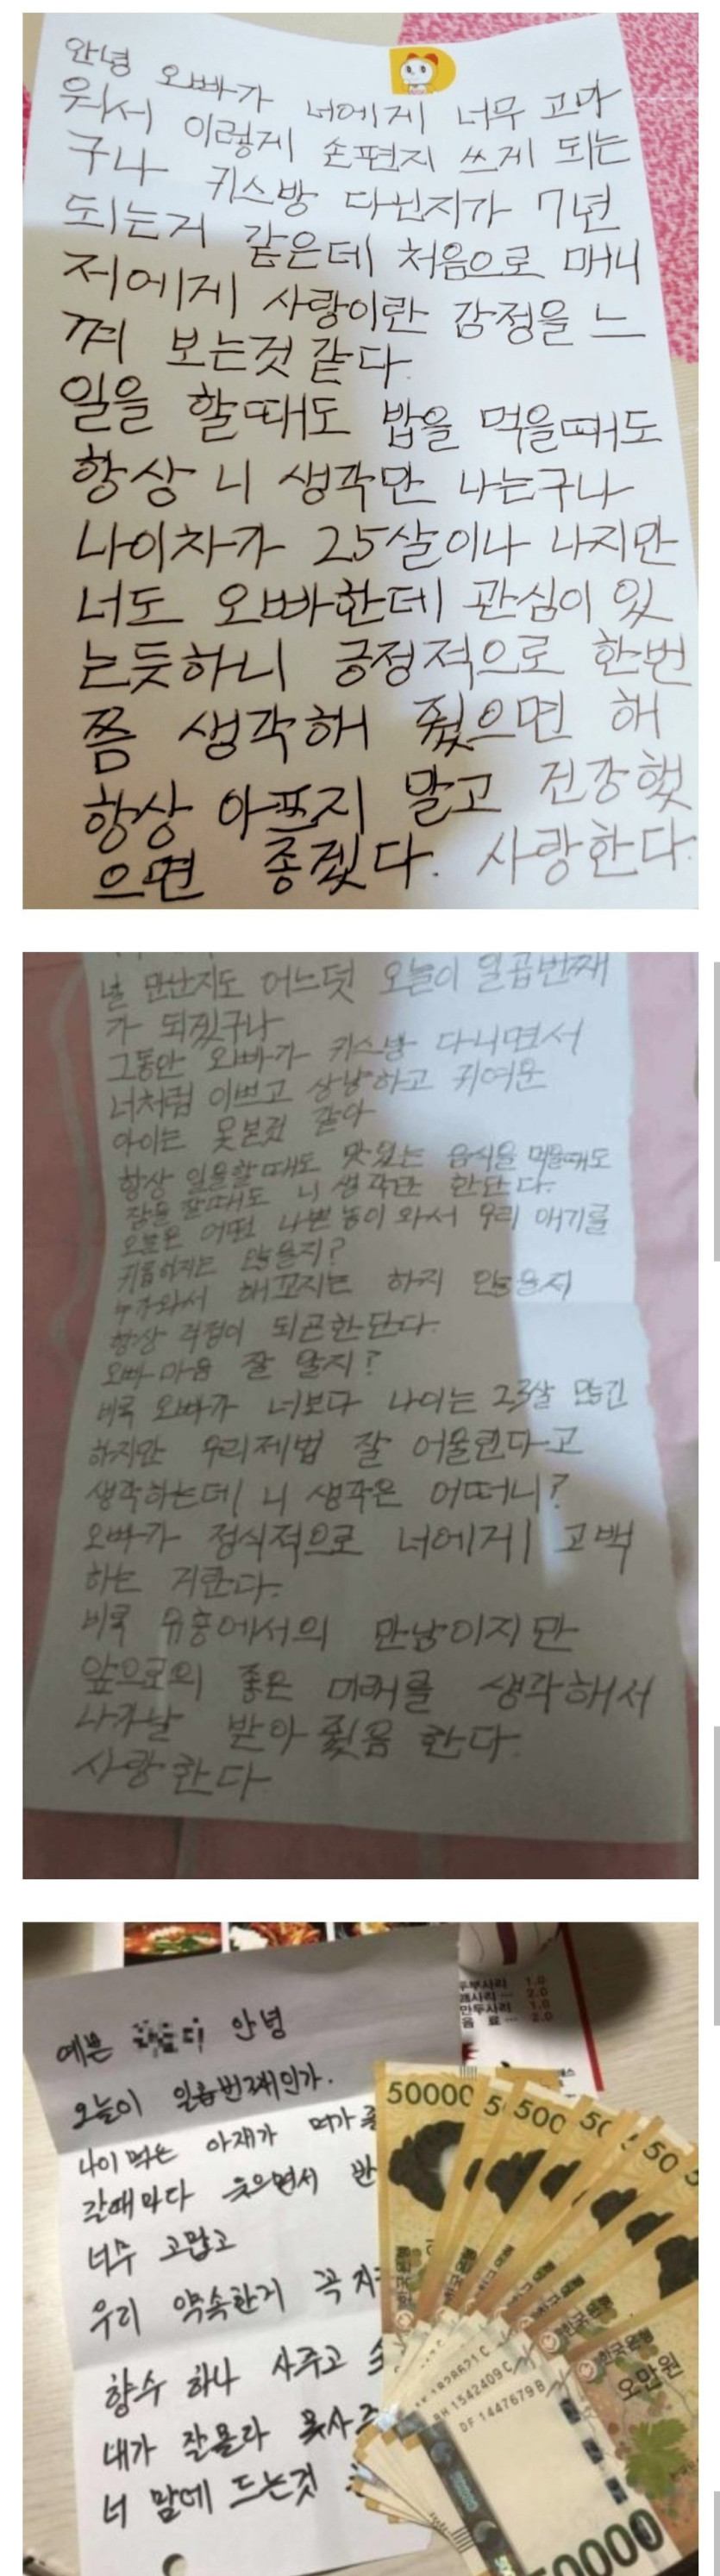 안녕 오빠가 너에게 너무 고마
워서 이렇게 손편지 쓰게 되는
구나 키스방 다닌지가 7년
되는거 같은데 처음으로 매니
저에게 사랑이란 감정을 느
껴 보는것 같다.
일을 할때도 밥을 먹을때도
항상 니 생각만 나는구나
나이차가 25살이나 나지만
너도 오빠한데 관심이 있
는듯하니 긍정적으로 한번
쯤 생각해 줬으면 해
항상 아프지 말고 건강했
으면 좋겠다. 사랑한다.
널 만난지도 어느덧 오늘이 일곱번째
가 되겠구나
그동안 오빠가 키스방 다니면서
너처럼 이쁘고 상냥하고 귀여운
아이는 못본것 같아
항상 일을할때도 맛있는 음식을 먹을때도
잠을 잘때도 니 생각만 한단다.
오늘은 어떤 나쁜놈이 와서 우리 애기를
귀롭히지는 않을지?
누가와서 해꼬지는 하지 않을지
항상 걱정이 되곤한단다.
오빠 마음 잘 알지?
비록 오빠가 너보다 나이는 23살 많긴
하지만 우리제법 잘 어울린다고
생각하는데 니 생각은 어떠니?
오빠가 정식적으로 너에게 고백
하는 거란다.
비록 유흥에서의 만남이지만
앞으로의 좋은 미래를 생각해서
나가날 받아줬음 한다.
사랑한다
예쁜 안녕
오늘이 일곱번째인가.
나이 먹은 아재가 뭐가 좋
갈때마다 웃으면서 반
너무 고맙고
우리 약속한거 꼭 지
향수 하나 사주고
내가 잘몰라 못사주
너 맘에 드는것
두부사리 1.0
2.0
만두사리 1.0
음 료 2.0
50000
5
500
50
50
5
한국은행
한국은행
한국은행
오만원
1542409C
DF 1447679B
50000